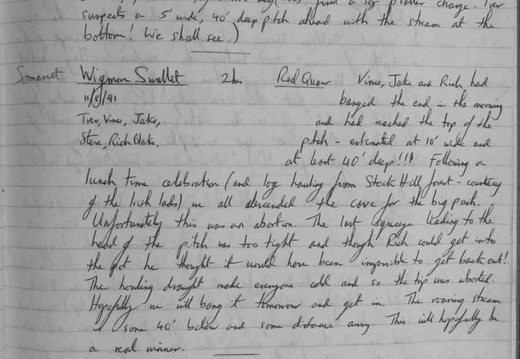 suspects a 5' wide, 40' deep pitch ahead with the stream at the
bottom! We shall see.)
Somerset Wigmore Swallet 2 hrs Red Quar Vince, Jake and Rich had
11/5/91 banged the end in the morning
Trev, Vince, Jake, and had reached the top of the
Steve, Rich Blake, pitch - estimated at 10' wide and
at least 40' deep!!! Following a
lunch time celebration (and log hauling from Stock Hill forest - courtesy
of the Irish lads) we all descended the cave for the big push.
Unfortunately this was an abortion. The last squeeze leading to the
head of the pitch was too tight and though Rich could get into
the pot he thought it would have been impossible to get back out!
The howling draught made everyone cold and so the trip was aborted.
Hopefully we will bang it tomorrow and get in. The roaring stream
is some 40' below and some distance away. This will hopefully be
a real winner.